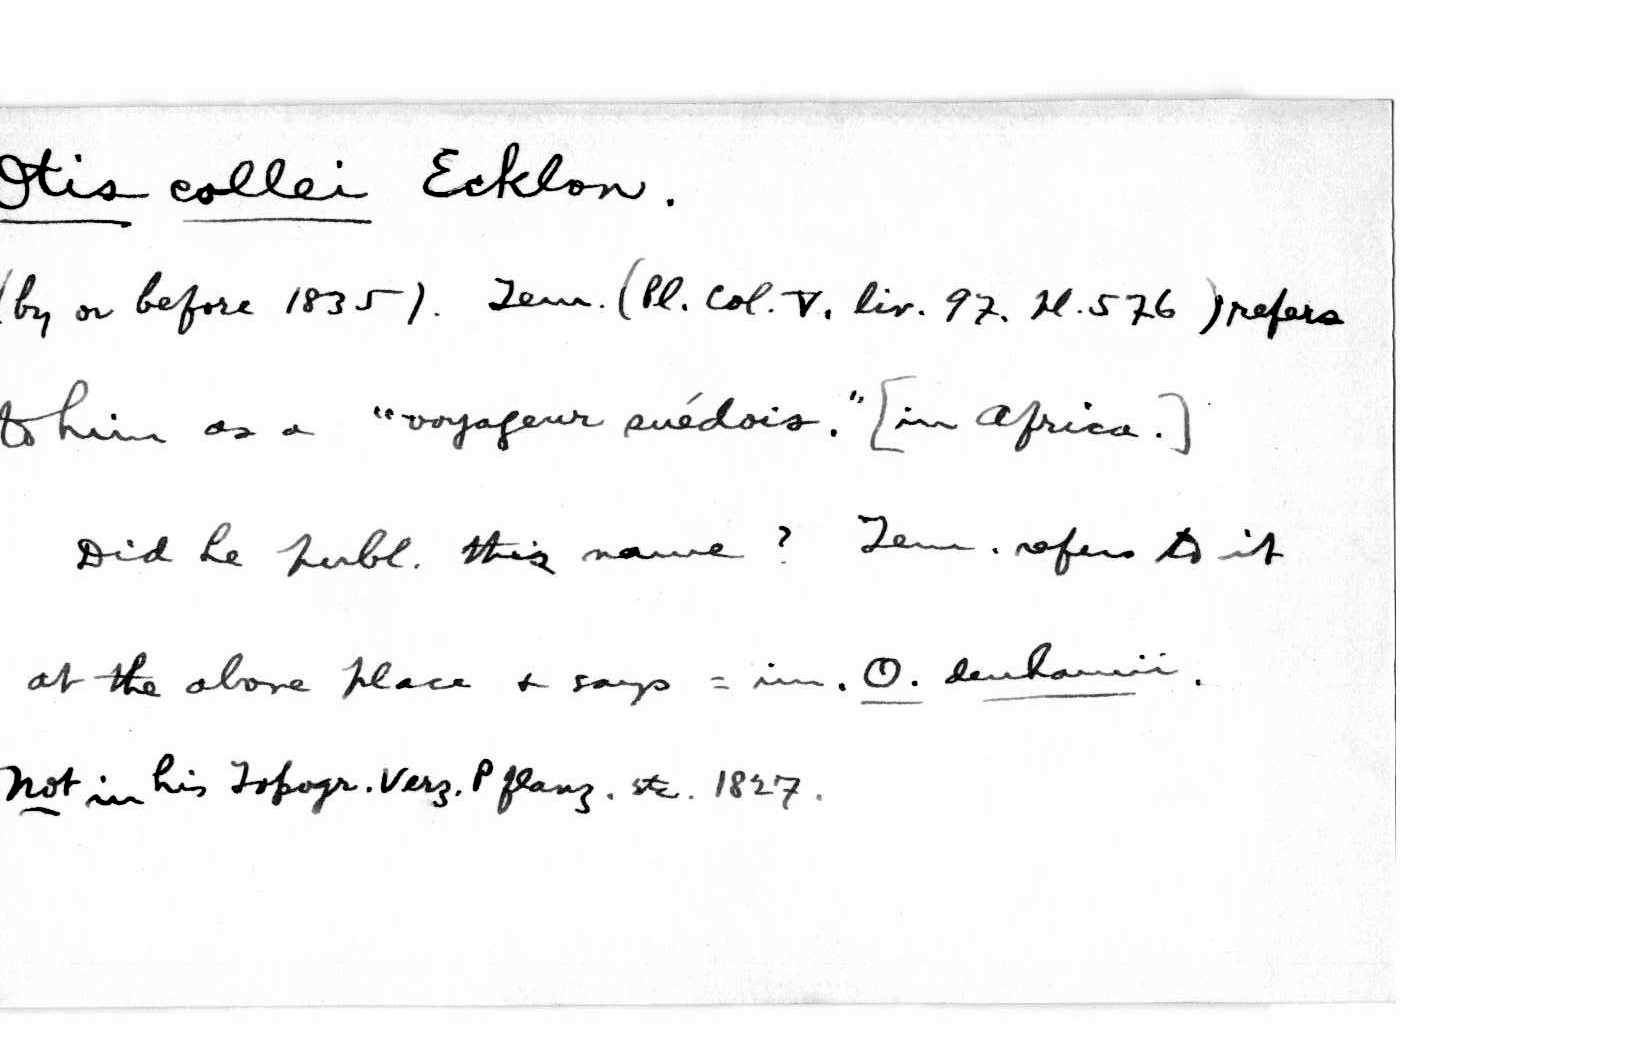 Otis collei Ecklon.
(by or before 1835). Tem. (Pl. Col. V. liv. 97. Pl. 576) refers
to him as a "voyageur suédois." [in Africa.]
Did he publ. this name? Tem. refers to it
at the above place & says = im. O. denhamii.
Not in his Topogr. Verz. Pflanz. etc. 1827.